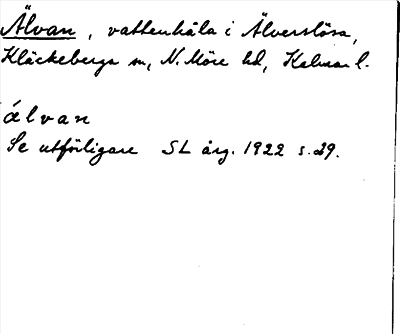 Älvan, vattenhåla i Älverslösa,
Kläckeberga sn, N. Möre hd, Kalmar l.
álvan
Se utförligare SL årg. 1922 s. 29.